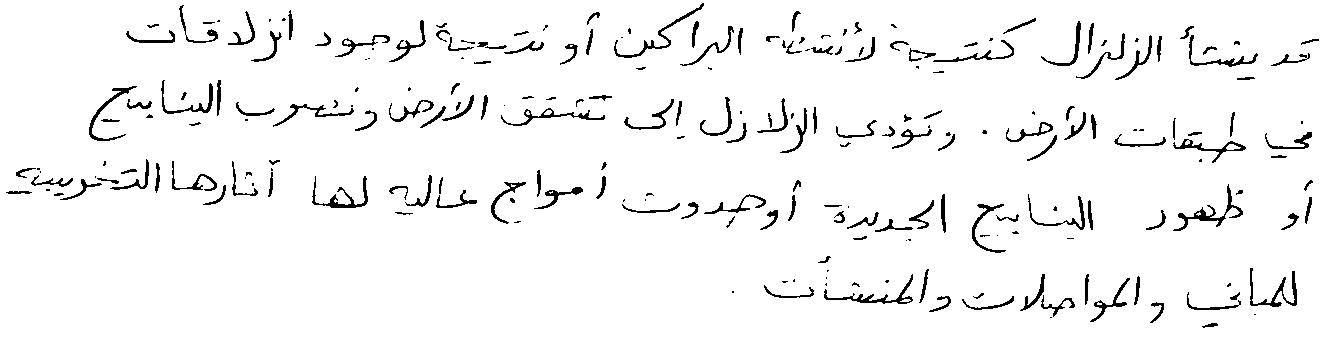 قد ينشأ الزلزال كنتيجة لأنشطه البراكين أو نتيجة لوجود انزلاقات
في طبقات الأرض . وتؤدي الزلازل إلى تشقق الأرض ونضوب الينابيع
أو ظهور الينابيع الجديدة أو حدوث أمواج عاليه لها آثارها التخريبيه
للمباني والمواصلات والمنشأت .